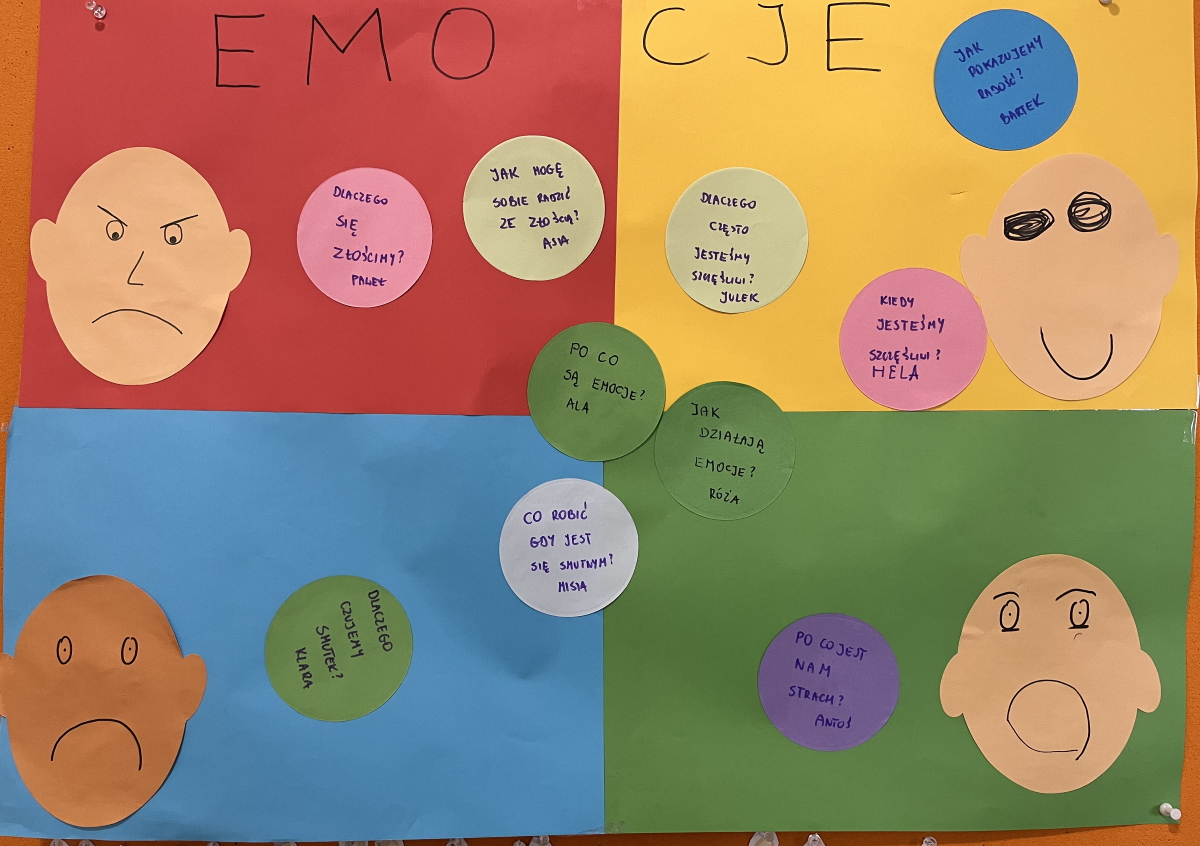 EMO CJE
JAK
POKAZUJEMY
RADOŚĆ?
BARTEK
DLACZEGO
SIĘ
ZŁOŚCIMY?
PAWEŁ
JAK MOGĘ
SOBIE RADZIĆ
ZE ZŁOŚCIĄ?
ASIA
DLACZEGO
CZĘSTO
JESTEŚMY
SZCZĘŚLIWI?
JULEK
KIEDY
JESTEŚMY
SZCZĘŚLIWI?
HELA
PO CO
SĄ EMOCJE?
ALA
JAK
DZIAŁAJĄ
EMOCJE?
RÓŻA
CO ROBIĆ
GDY JEST
SIĘ SMUTNYM?
MISIA
DLACZEGO
CZUJEMY
SMUTEK?
KLARA
PO CO JEST
NAM
STRACH?
ANTOŚ